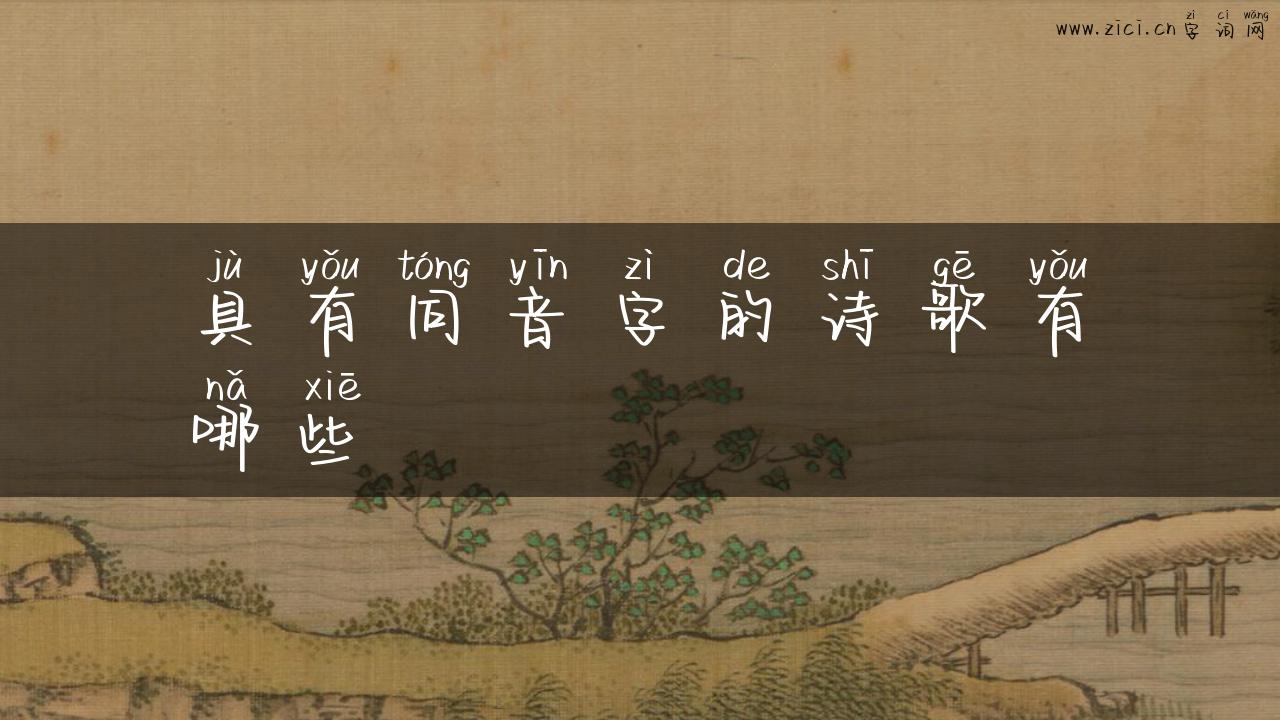 zì cí wǎng
www.zici.cn 字 词 网
jù yǒu tóng yīn zì de shī gē yǒu
具 有 同 音 字 的 诗 歌 有
nǎ xiē
哪 些